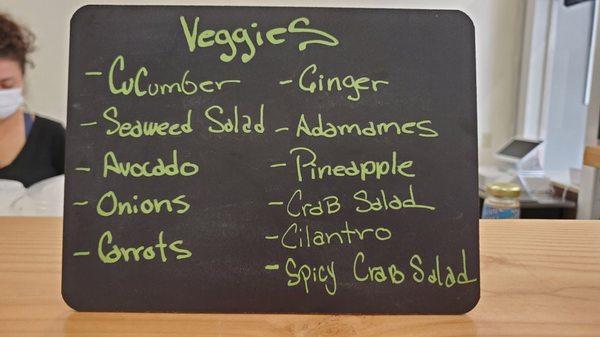 Veggies
- Cucumber
- Seaweed Salad
- Avocado
- Onions
- Carrots
- Ginger
- Adamames
- Pineapple
- Crab Salad
- Cilantro
- Spicy Crab Salad